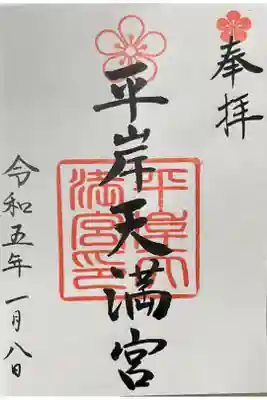 奉拝
平岸天満宮
平岸天満宮印
令和五年一月八日